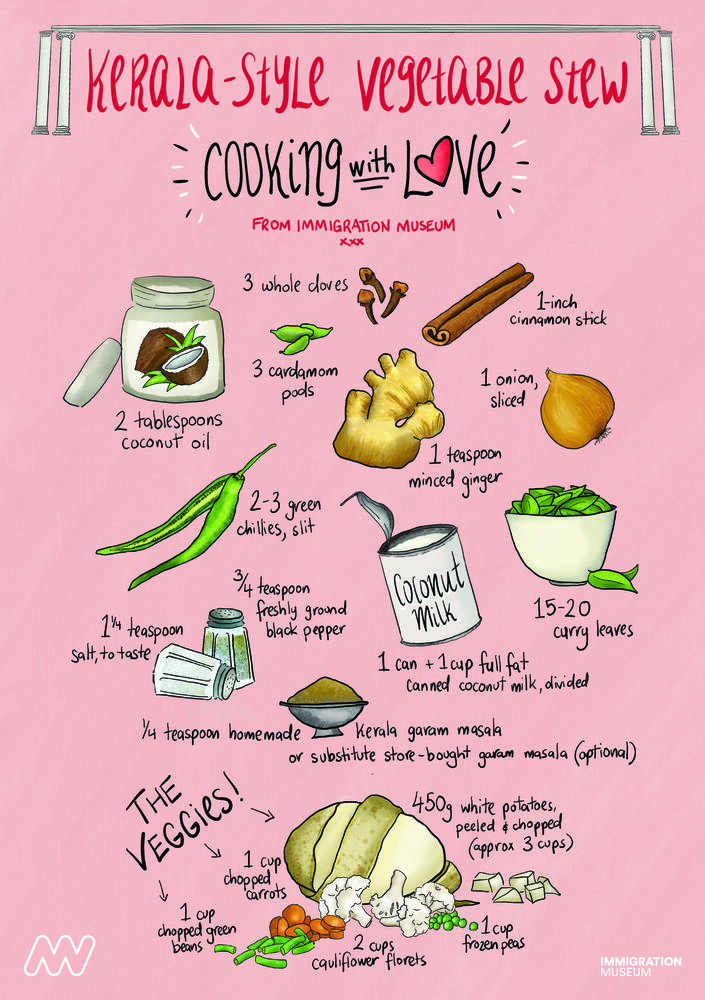 Kerala-Style Vegetable Stew
Cooking with Love
FROM IMMIGRATION MUSEUM
xxx
3 whole cloves
1-inch
cinnamon stick
3 cardamom
pods
1 onion,
sliced
2 tablespoons
coconut oil
1 teaspoon
minced ginger
2-3 green
chillies, slit
Coconut
Milk
15-20
curry leaves
3/4 teaspoon
freshly ground
black pepper
1 1/4 teaspoon
salt, to taste
1 can + 1 cup full fat
canned coconut milk, divided
1/4 teaspoon homemade Kerala garam masala
or substitute store-bought garam masala (optional)
THE
VEGGIES!
450g white potatoes,
peeled & chopped
(approx 3 cups)
1 cup
chopped
carrots
1 cup
chopped green
beans
2 cups
cauliflower florets
1 cup
frozen peas
IMMIGRATION
MUSEUM